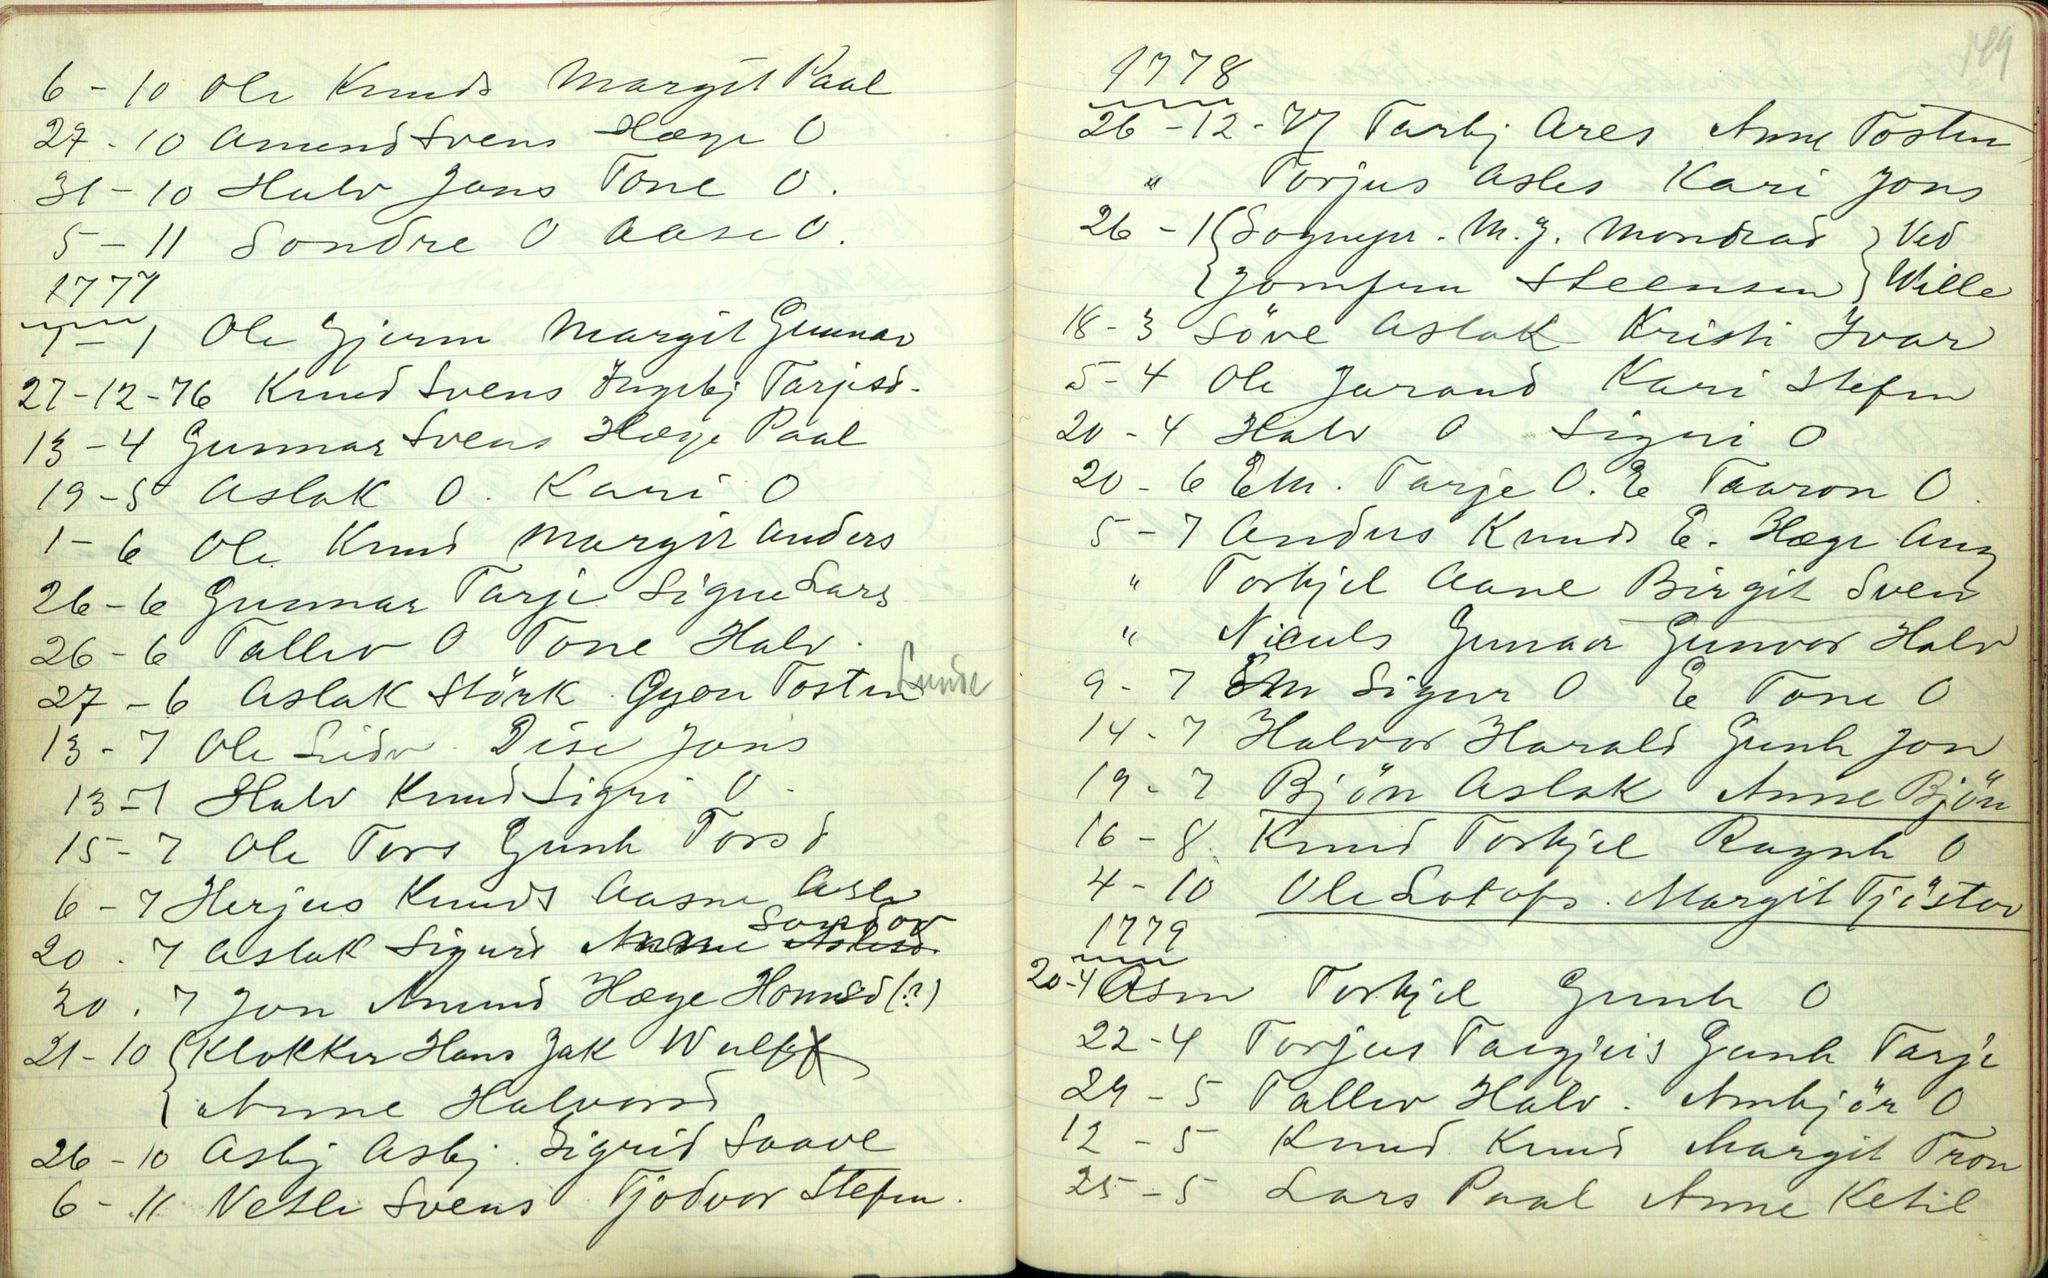 6 - 10 Ole Knuds Margit Paal
27 - 10 Amund Svens Hæge O
31 - 10 Halv Jons Tone O.
5 - 11 Sondre O Aase O.
1777
1 - 1 Ole Gjerm Margit Gunnar
27-12-76 Knud Svens Ingebj Tarjesd.
13 - 4 Gunnar Svens Hæge Paal
19 - 5 Aslak O. Kari O
1 - 6 Ole Knud Margit Anders
26 - 6 Gunnar Tarje Signe Lars
26 - 6 Tallev O Tone Halv.
27 - 6 Aslak Störk Gyon Tosten Lunde
13 - 7 Ole Lidv. Dise Jons
13 - 7 Halv Knud Sigri O.
15 - 7 Ole Tors Gunh Torsd
6 - 7 Herjus Knuds Aasne Asle
Sondov
20 . 7 Aslak Sigurd Anne Aslesd.
20 . 7 Jon Amund Hæge Homsd (?)
21 - 10 { Klokker Hans Jak Wulff
{ Anne Halvorsd
26 - 10 Asbj Asbj. Sigrid Saave
6 - 11 Netle Svens Tjodvor Stefen.
149
1778
26 - 12 - 77 Tarbj Ares Anne Tosten
" Torjus Asles Kari Jons
26 - 1 { Sogнepr. M. J. Mondrad } Ved
{ Jomfru Steensen } Wille
18 - 3 Söve Aslak Kristi Ivar
5 - 4 Ole Jorand Kari Stefen
20 - 4 Halv O Sigri O
20 - 6 Em. Tarje O. E Taaron O.
5 - 7 Anders Knuds E. Hæge Aug
" Torkjel Aane Birgit Sven
" Niculs Gunar Gunvor Halv
9 - 7 Em Sigur O E Tone O
14 - 7 Halvor Harald Gunh Jon
19 - 7 Bjön Aslak Anne Bjön
16 - 8. Knud Torkjel Ragnh O
4 - 10 Ole Lotofs. Margit Tjöstov
1779
20-4 Asm Torkjel Gunh O
22 - 4 Torjus Targjeis Gunh Tarje
24 - 5 Tallev Halv. Ambjör O
12 - 5 Knud Knud Margit Tron
25 - 5 Lars Paal Anne Ketil